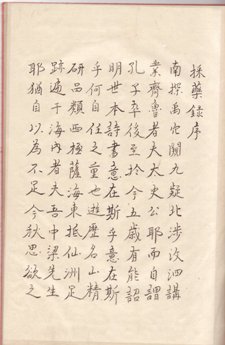 採藥録序
南探禹穴闚九疑北渉汶泗講
業齊魯者夫太史公耶而自謂
孔子卒後至於今五歳有能詔
明世本詩書意在斯乎意在斯
乎何自任之重也遊歴名山精
研品類西極薩海東抵仙洲足
跡遍于海内者夫吾中梁先生
耶猶自以為不足今秋思欲之